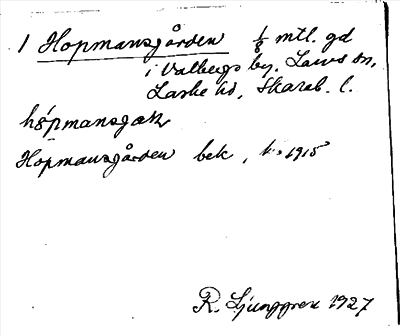 1 Hopmansgården 1/8 mtl. gd
i Valbergs by, Lavads sn,
Laske hd, Skarab. l.
Hopmansgården bek, k. 1915
R. Ljunggren 1927